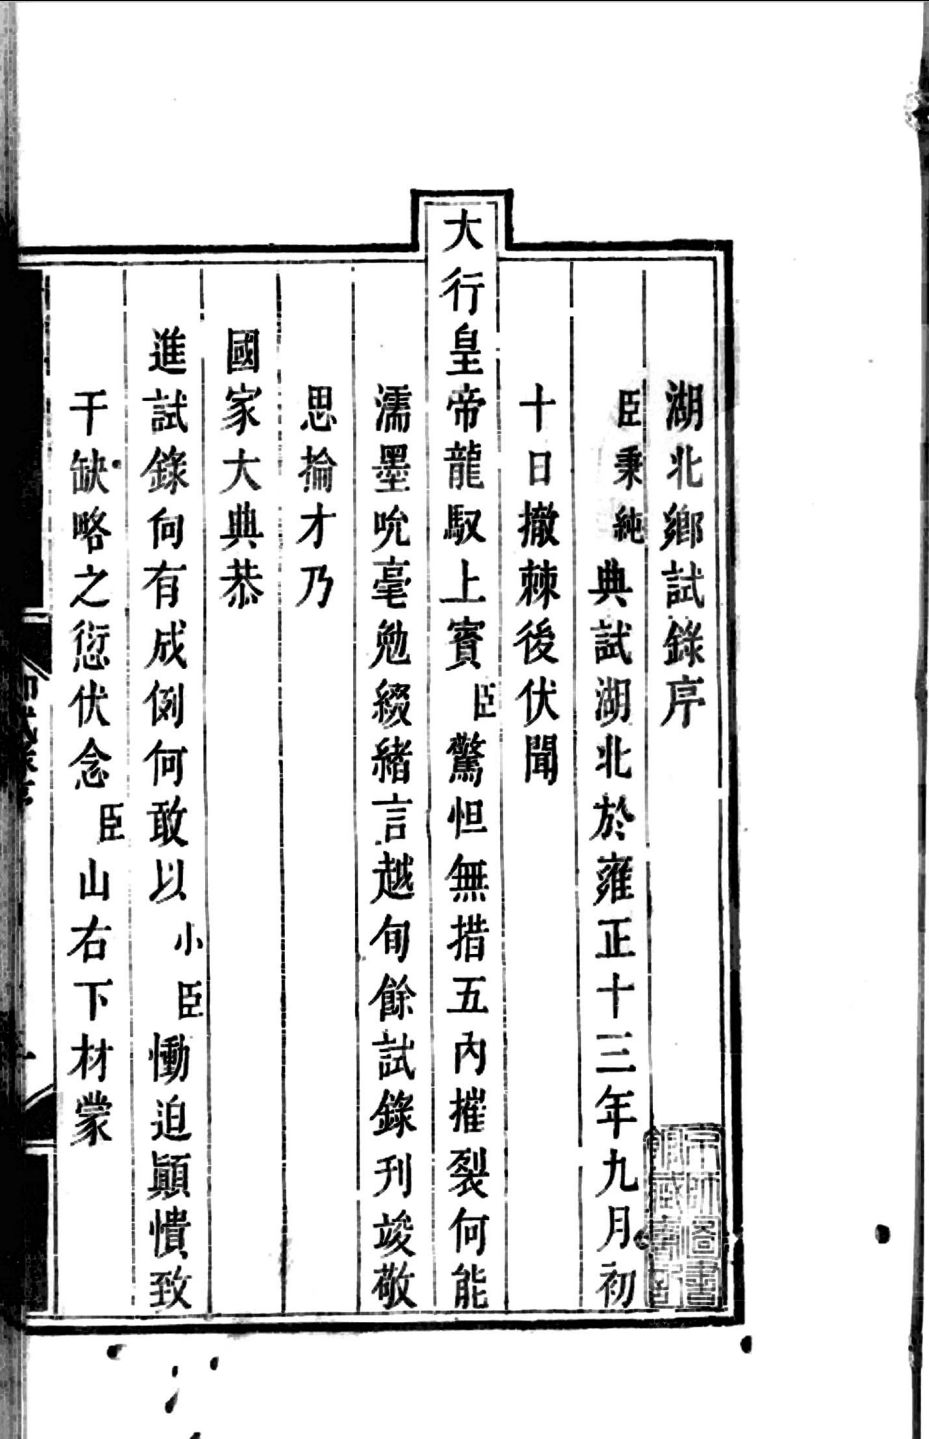 湖北鄉試錄序
臣秉純典試湖北於雍正十三年九月初
十日撤棘後伏聞
大行皇帝龍馭上賓臣驚怛無措五內摧裂何能
濡墨吮毫勉綴緒言越旬餘試錄刊竣敬
思掄才乃
國家大典恭
進試錄向有成例何敢以小臣慟迫顛憒致
干缺略之愆伏念臣山右下材蒙
京師圖書
館藏書